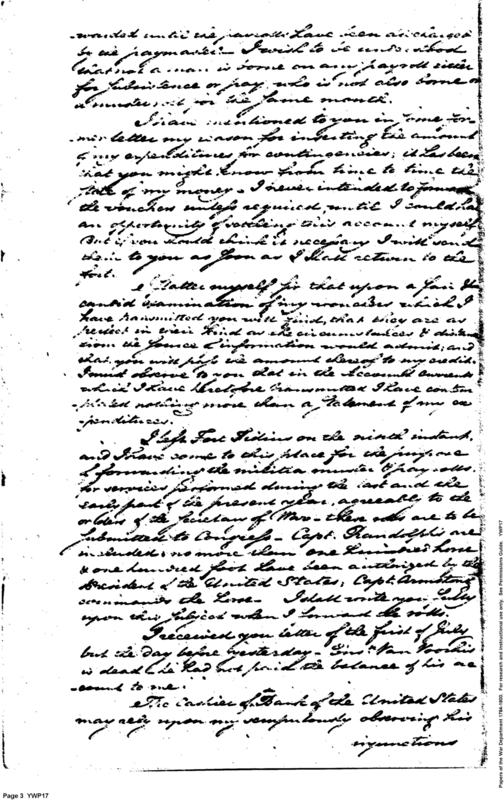 warded until the payrolls have been discharged
by the paymaster — I wish to be understood
that not a man is borne on any payroll either
for subsistence or pay who is not also borne on
a muster roll for the same month.
I have mentioned to you in some for-
mer letter my reason for inserting the amount
of my expenditures for contingencies; it has been
that you might know from time to time the
state of my money — I never intended to forward
the vouchers unless required until I could have
an opportunity of settling this account myself
But if you should think it necessary I will send
them to you as soon as I shall return to the
fort.
I flatter myself Sir that upon a fair &
candid examination of my vouchers which I
have transmitted you will find, that they are as
perfect in their kind as the circumstances &
the source of information would admit; and
that you will pass the amount thereof to my credit.
I must observe to you that in the Accounts Current
which I have heretofore transmitted I have contem-
plated nothing more than a statement of my ex-
penditures.
I left Fort Fidius on the ninth instant,
and I have come to this place for the purpose
of forwarding the militia muster & pay rolls
for services performed during the last and the
early part of the present year, agreeably to the
orders of the Secretary of War — these rolls are to be
submitted to Congress — Capt. Randolph's are
included; no more than one hundred horse
& one hundred foot have been authorized by the
President of the United States; Capt. Armstrong
commands the horse — I shall write you fully
upon this subject when I forward the rolls.
I received your letter of the first of July
but the day before yesterday — Van Voorhis
is dead; he had not paid the balance of his ac-
count to me.
The Cashier of Bank of the United States
may rely upon my scrupulously observing his
injunctions
Page 3 YWP17
Papers of the War Department 1784-1800. For research and instructional use only. See Permissions Guide. YWP17